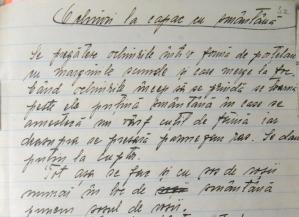 Ochiuri la capac cu smântână
Se pregătesc ochiurile într'o formă de porțelan
cu marginile scunde și care merge la foc
când ochiurile încep să se prindă se toarnă
peste ele puțină smântână în care se
amestecă un vârf cuțit de făină iar
deasupra se presară parmezan ras. Se dau
puțin la cuptor.
Tot așa se fac și cu sos de roșii
numai în loc de smântână
punem sosul de roșii.